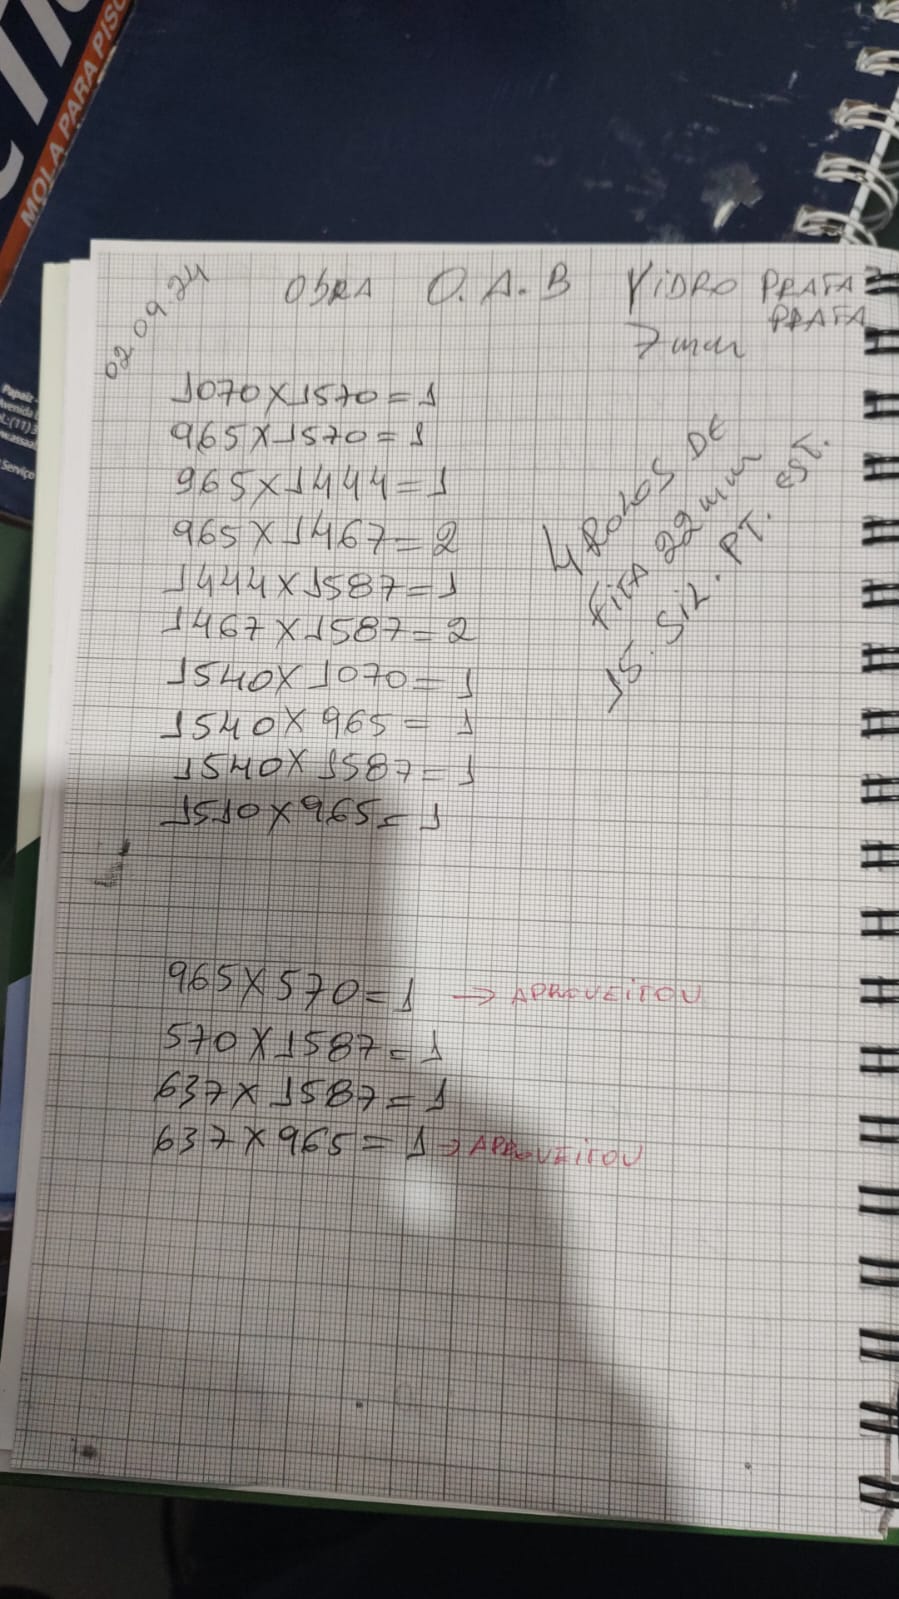 MOLA PARA PISO
Papaiz
Serviço
02.09.24
OBRA O.A.B VIDRO PRATA
PRATA
7mm
1070X1570=1
965X1570=1
965X1444=1
965X1467=2
1444X1587=1
1467X1587=2
1540X1070=1
1540X965=1
1540X1587=1
1510X965=1
4 ROLOS DE
FITA 22mm
15. SIL. PT. EST.
965X570=1 → APROVEITOU
570X1587=1
637X1587=1
637X965=1 → APROVEITOU